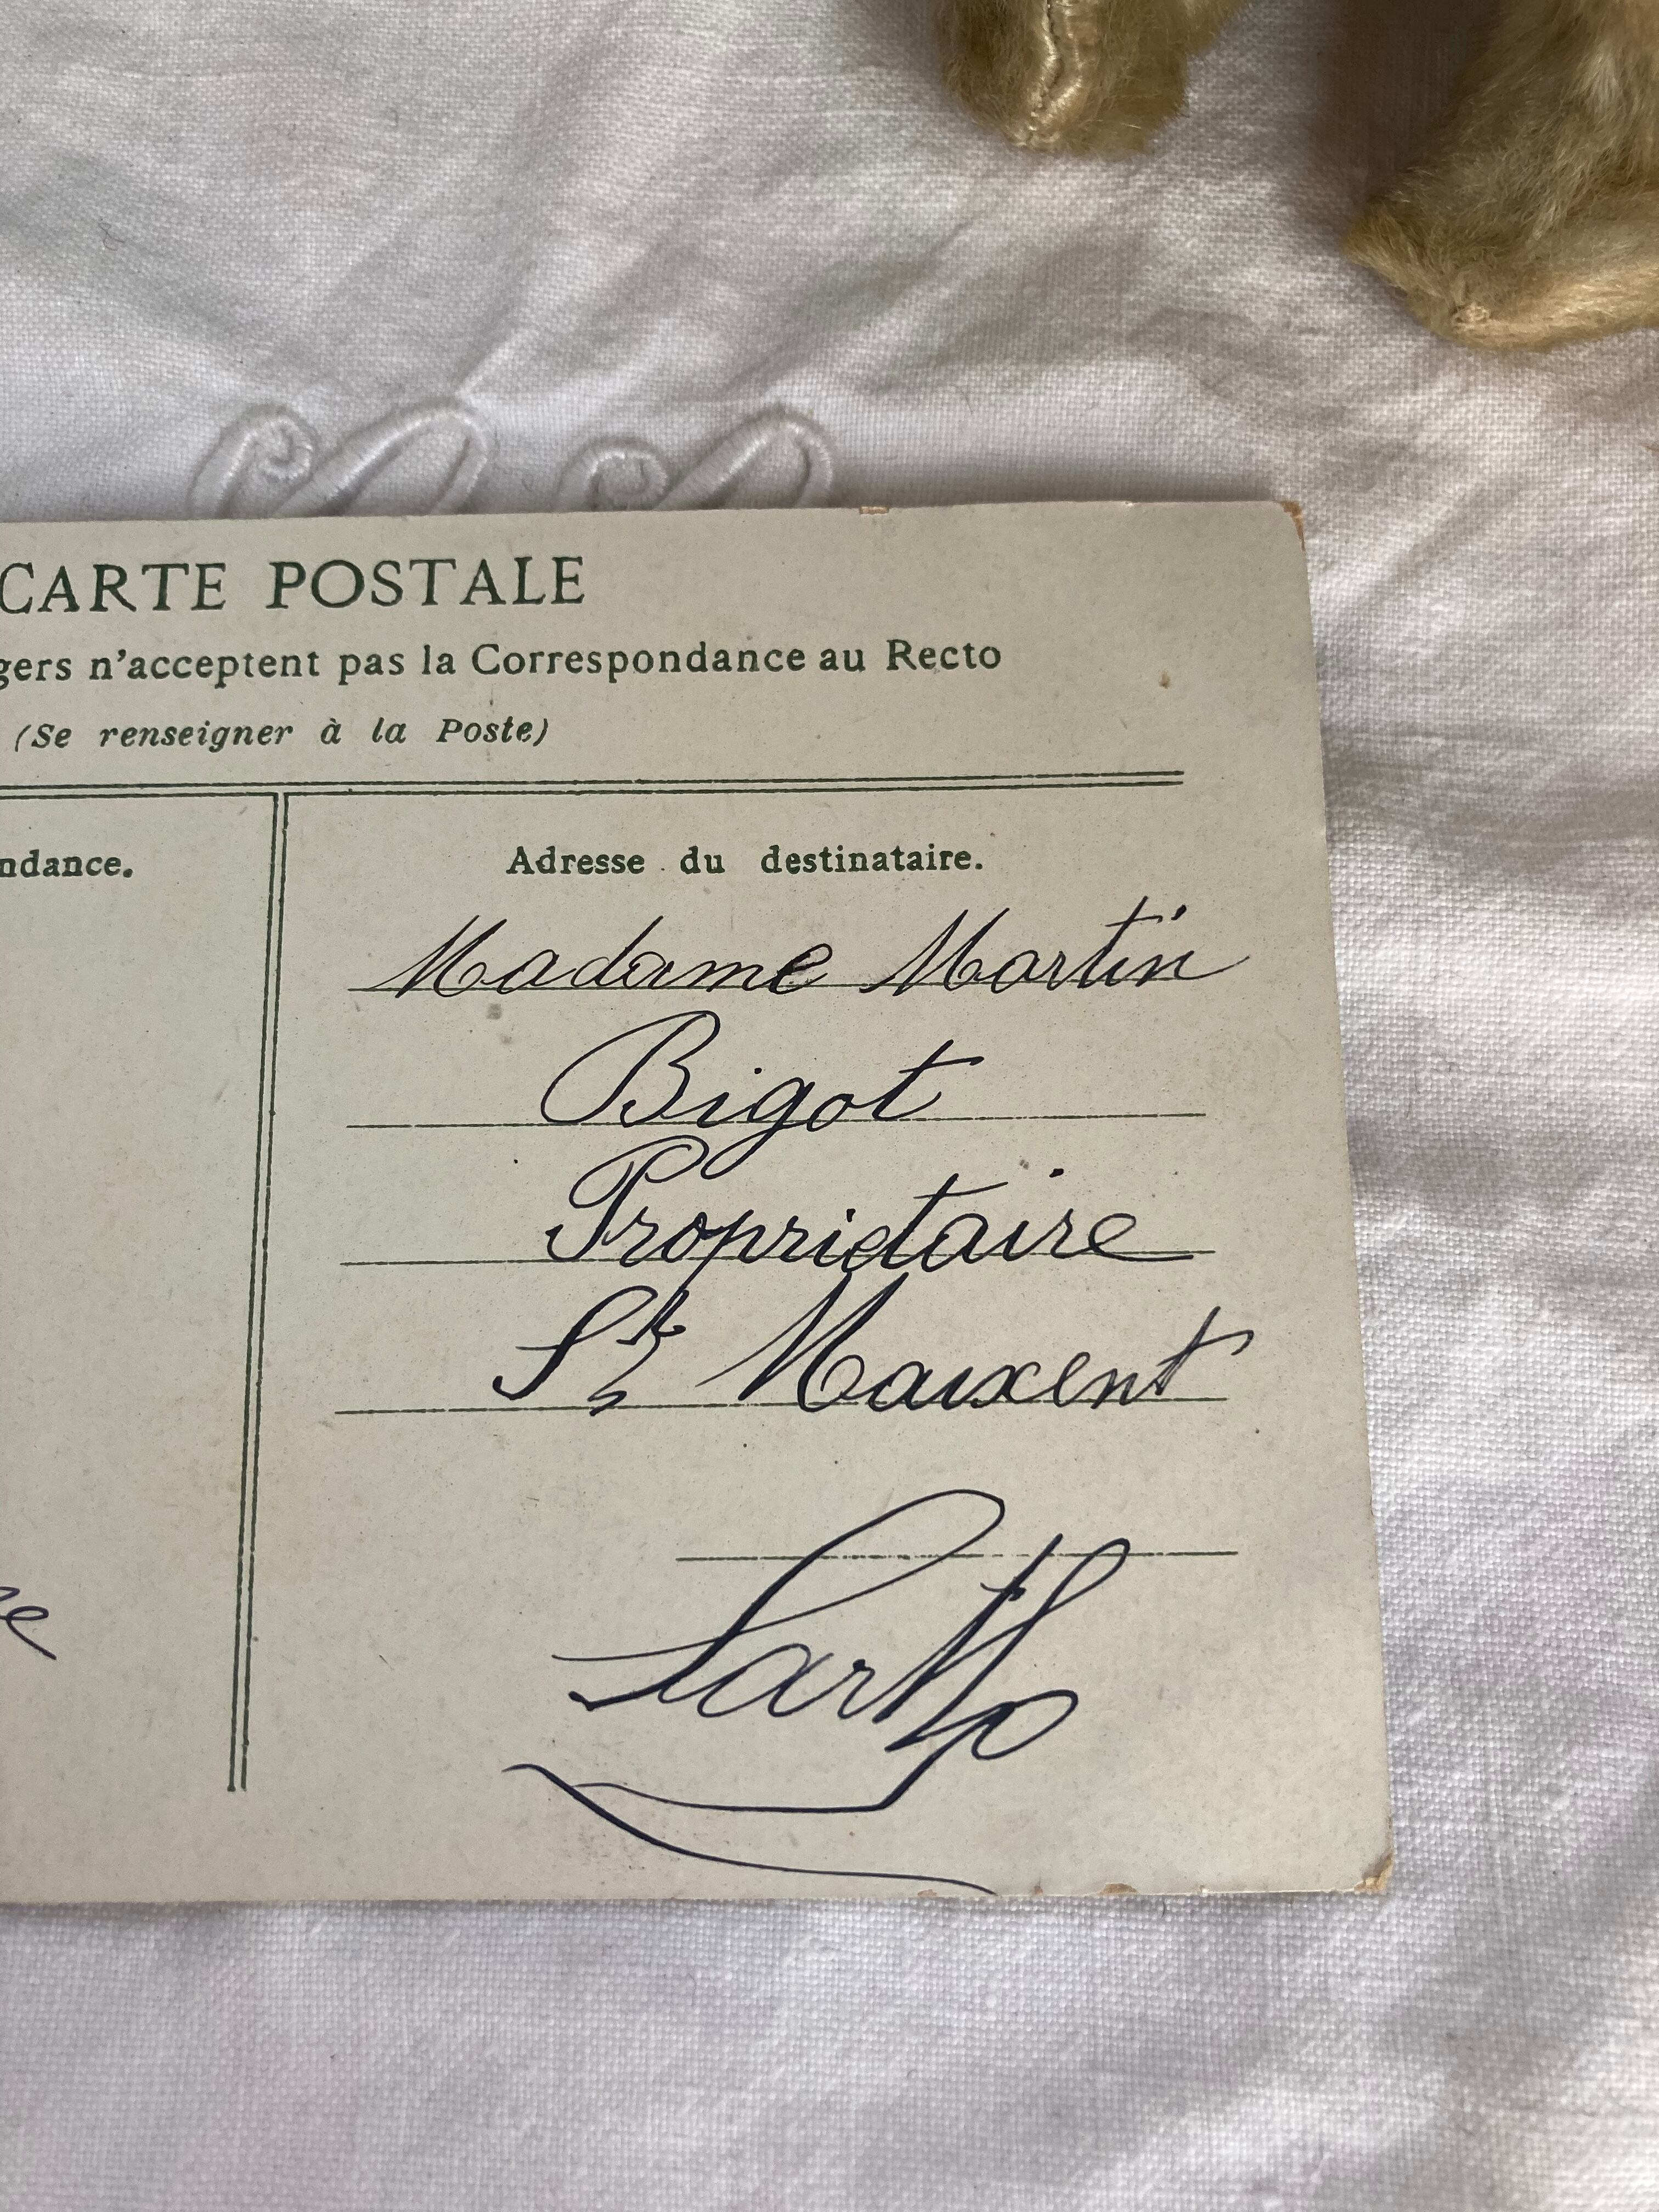 CARTE POSTALE
gers n'acceptent pas la Correspondance au Recto
(Se renseigner à la Poste)
ndance.
Adresse du destinataire.
Madame Martin
Bigot
Propriétaire
St Maixent
Sarthe